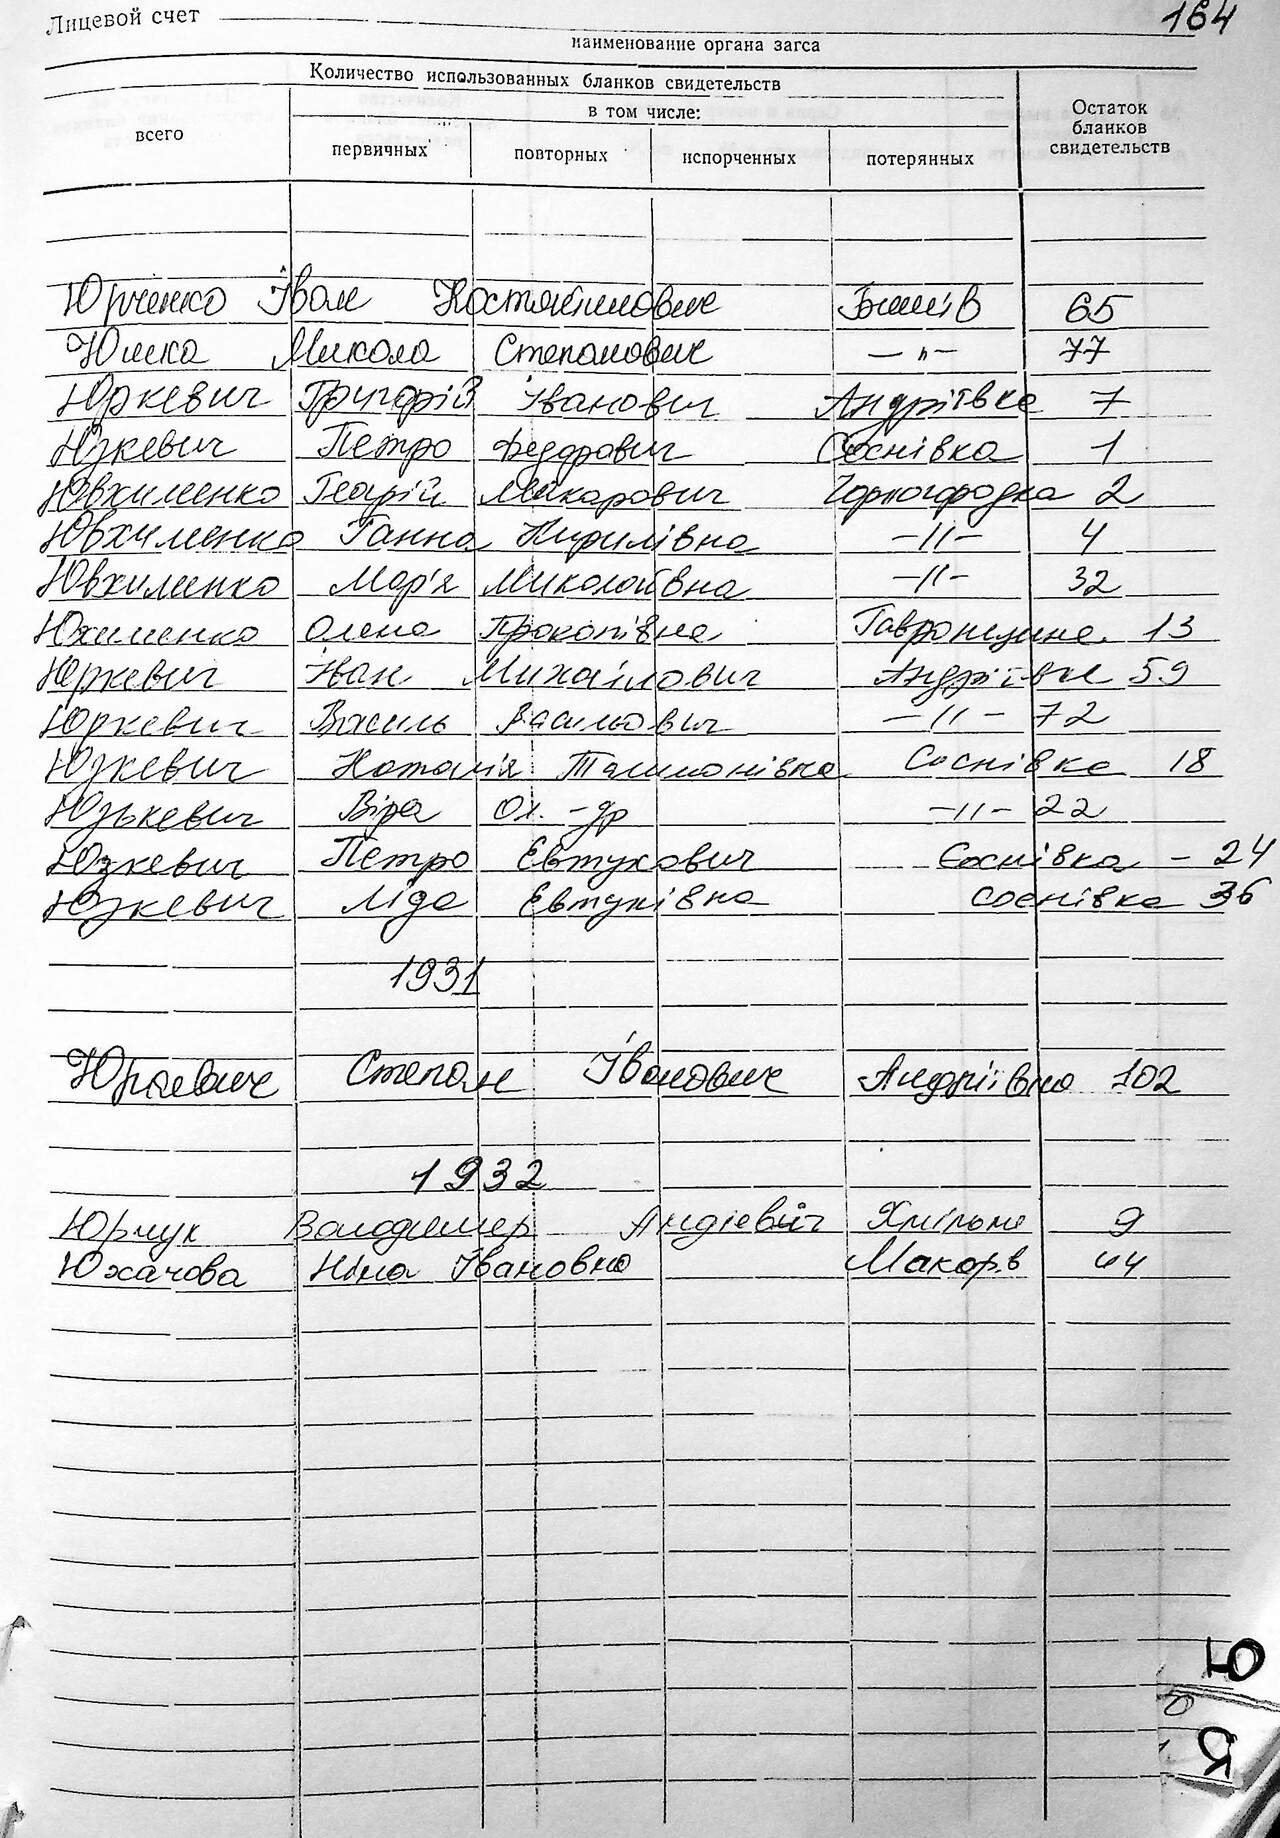 Лицевой счет 164
наименование органа загса
Количество использованных бланков свидетельств
в том числе:
всего первичных повторных испорченных потерянных Остаток бланков свидетельств
Юрченко Іван Костянтинович Бишів 65
Юшка Микола Степанович —"— 77
Юркевич Григорій Іванович Андріївка 7
Юзкевич Петро Федорович Соснівка 1
Ювхименко Георгій Макарович 2
Ювхименко Ганна Кирилівна —"— 4
Ювхименко Мар'я Миколаївна —"— 32
Юхименко Олена Прокопівна Гавронщина 13
Юркевич Іван Михайлович Андріївка 59
Юркевич Василь Васильович —"— 72
Юзкевич Наталія Тимонівна Соснівка 18
Юзькевич Віра Ол.-др —"— 22
Юзкевич Петро Євтухович Соснівка – 24
Юзкевич Ліда Євтухівна Соснівка 36
1931
Юркевич Степан Іванович Андріївка 102
1932
Юрчук Володимер Андієвич Хмільна 9
Юхачова Ніна Івановна Макарів 44
Ю
Я